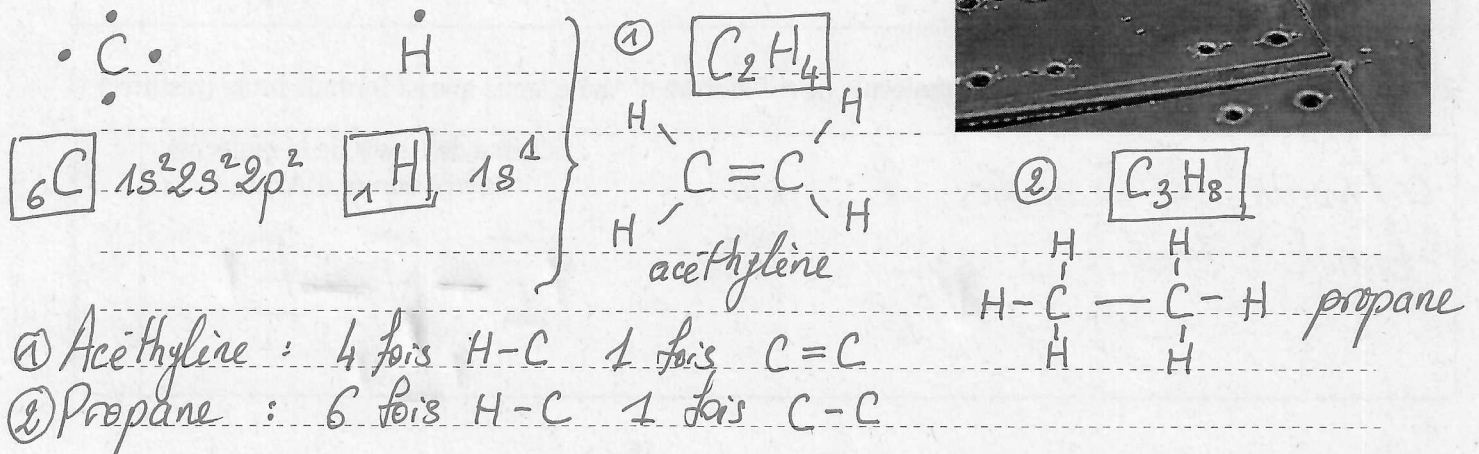 • C • H
₆C 1s²2s²2p² ₁H, 1s¹
① C₂H₄
H H
C = C
H H
acéthylène
② C₃H₈
H H
H - C — C - H propane
H H
① Acéthylène : 4 fois H-C 1 fois C=C
② Propane : 6 fois H-C 1 fois C-C